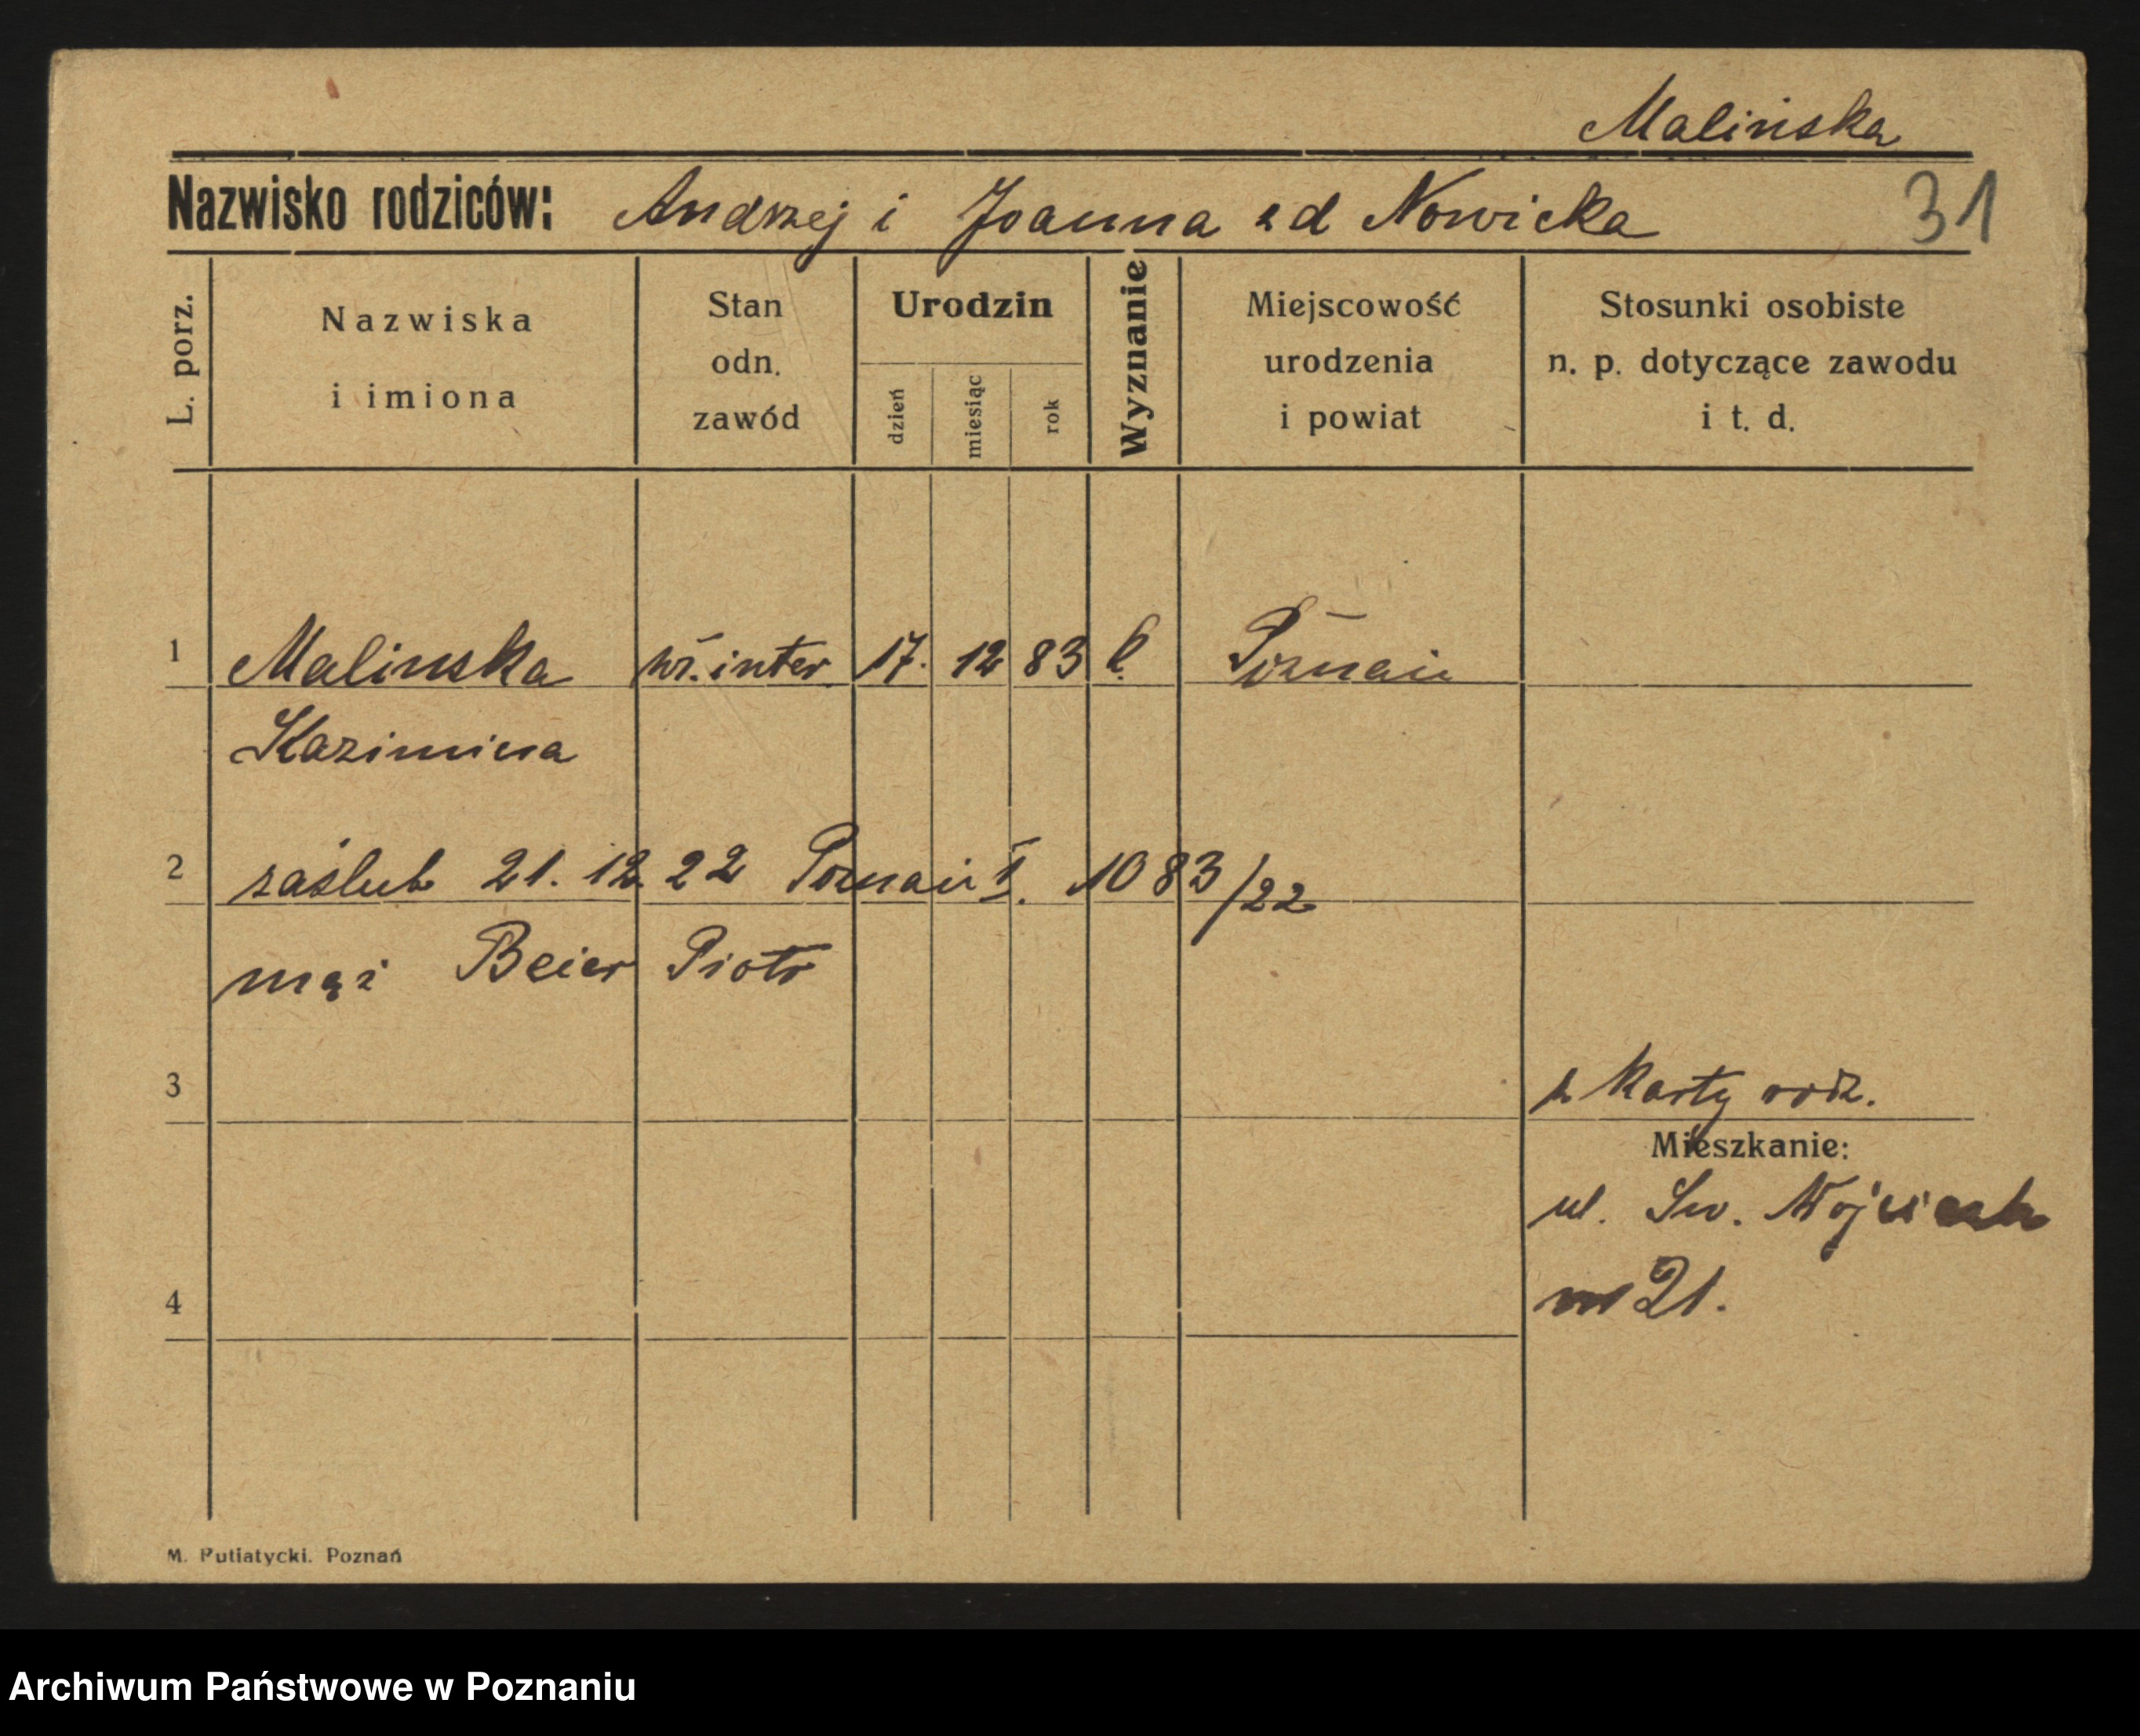 Malińska
Nazwisko rodziców: Andrzej i Joanna zd Nowicka 31
L. porz.
Nazwiska i imiona
Stan odn. zawód
Urodzin
dzień
miesiąc
rok
Wyznanie
Miejscowość urodzenia i powiat
Stosunki osobiste n. p. dotyczące zawodu i t. d.
1 Malinska 17. 12 83 k. Poznań
Kazimiera
2 zaślub 21. 12. 22 Poznań I. 1083/22
mąż Beier Piotr
3 z karty rodz.
Mieszkanie:
ul. Św. Wojciech
4 21.
M. Putiatycki. Poznań
Archiwum Państwowe w Poznaniu